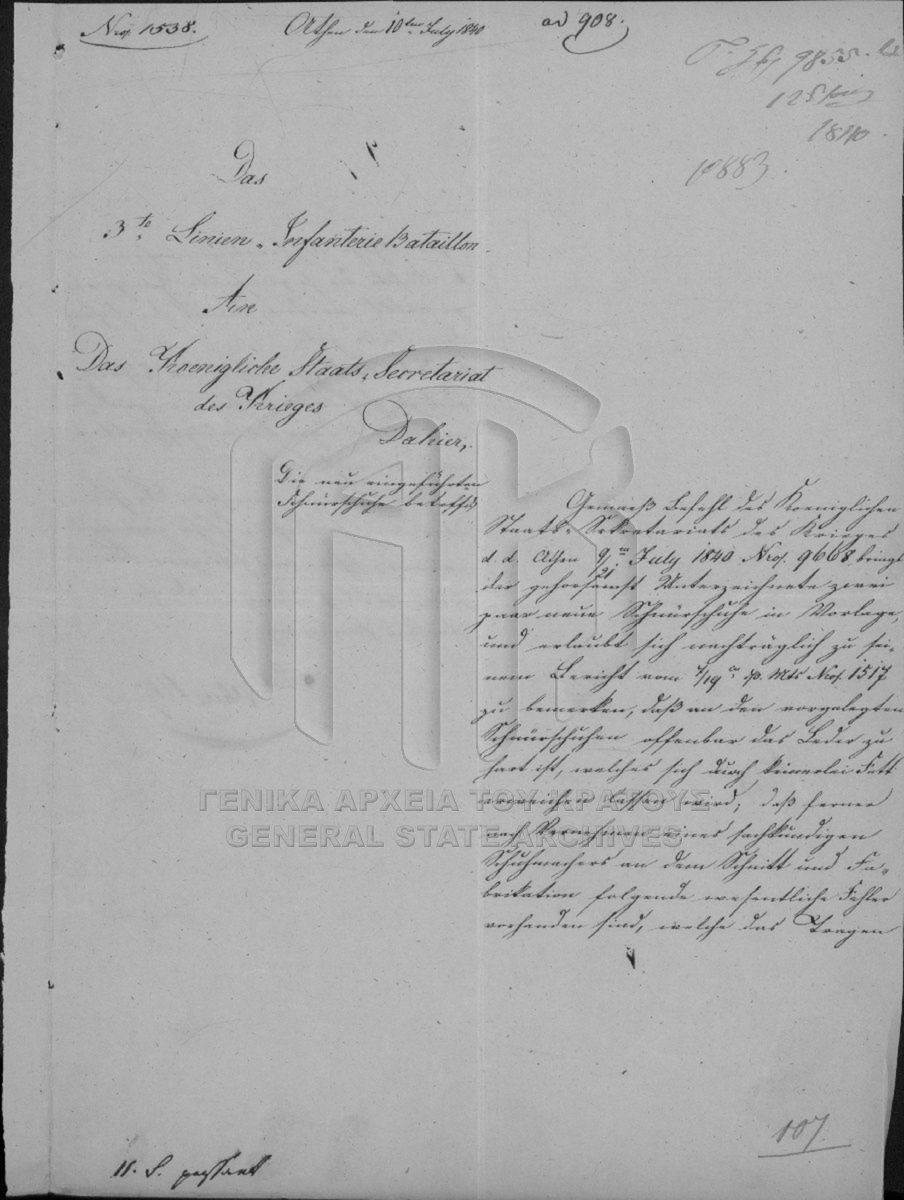 Nro. 1538.
Athen den 10ten July 1840
ad 908.
9855.
12
1840.
10883
Das
3te Linien-Infanterie Bataillon
An
Das Koenigliche Staats-Secretariat
des Krieges
Dahier,
Die neu eingeführten
Schnürschuhe betreffd
Gemäß Befehl des Koeniglichen
Staats-Sekretariats des Krieges
d. d. Athen 9/21ten July 1840 Nro. 9668 bringt
der gehorsamst Unterzeichnete zwei
paar neue Schnürschuhe in Vorlage,
und erlaubt sich nachträglich zu sei-
nem Bericht vom 7/19ten Mts Nro. 1517
zu bemerken, daß an den vorgelegten
Schnürschuhen offenbar das Leder zu
hart ist, welches sich durch keinerlei Fett
erweichen lassen wird; daß ferner
nach Vernehmen eines sachkundigen
Schuhmachers an dem Schnitt und Fa-
brikation folgende wesentliche Fehler
vorhanden sind, welche das Tragen
ΓΕΝΙΚΑ ΑΡΧΕΙΑ ΤΟΥ ΚΡΑΤΟΥΣ
GENERAL STATE ARCHIVES
107